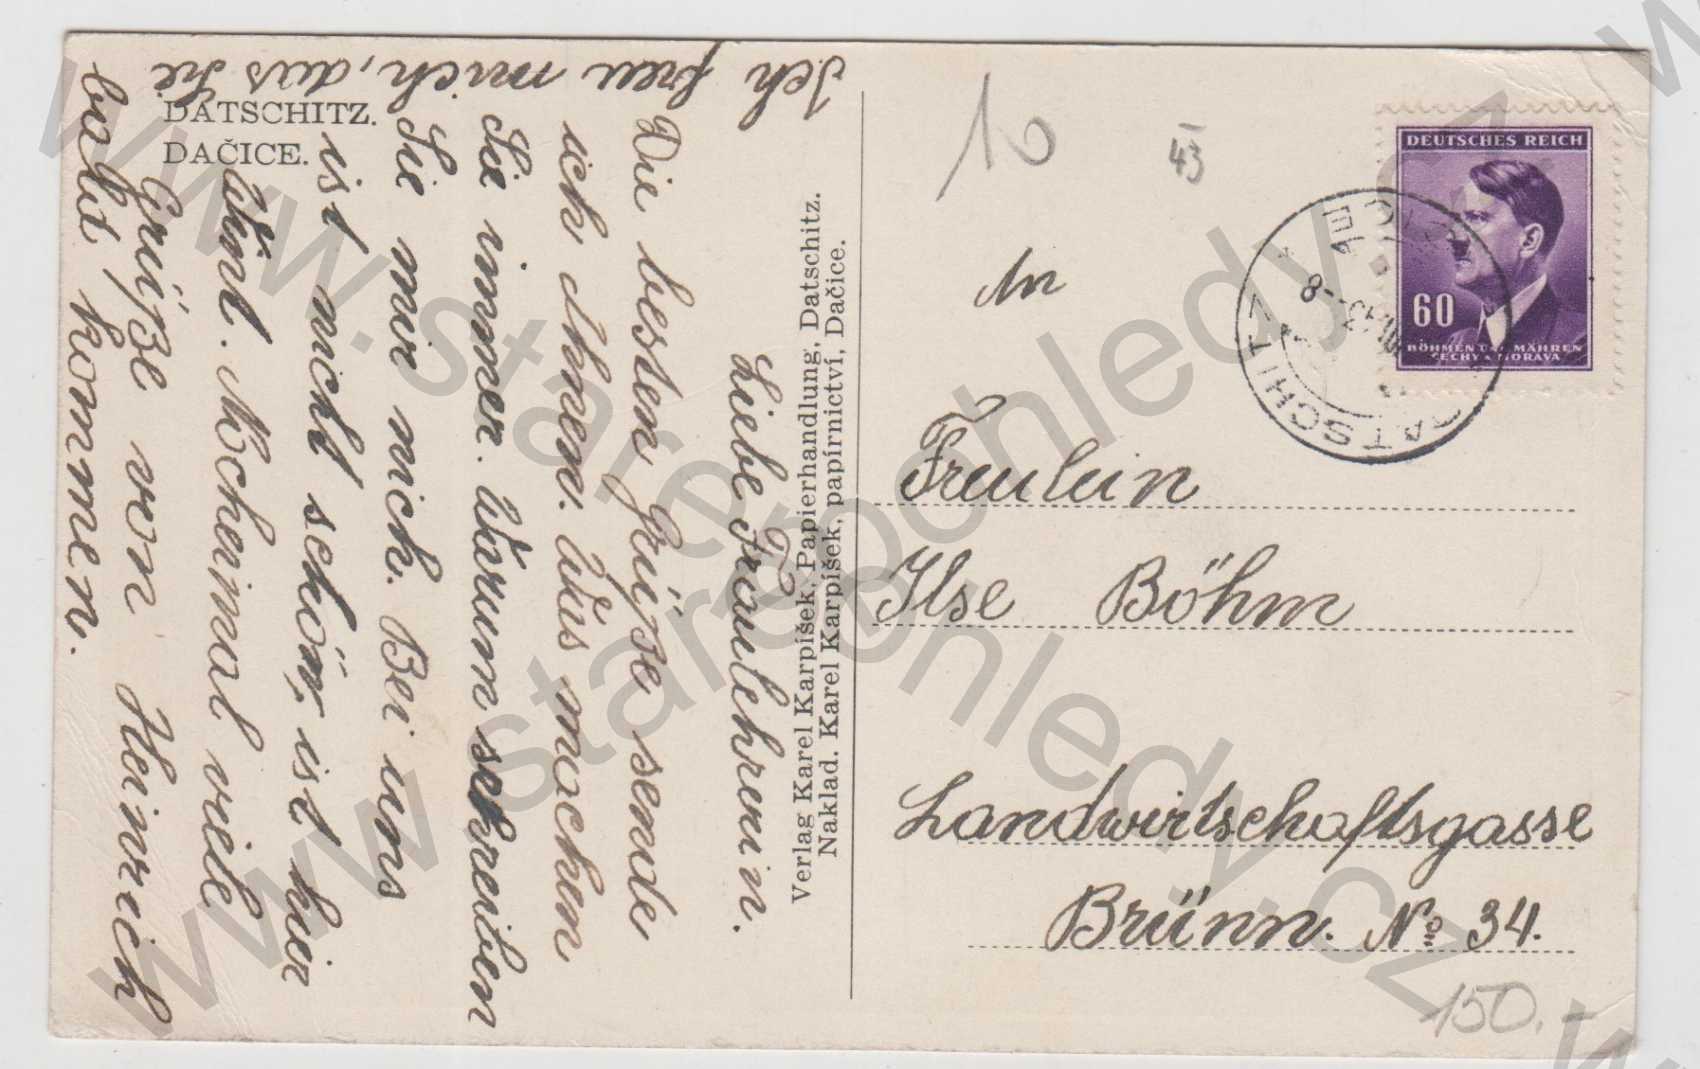 DATSCHITZ.
DAČICE.
Liebe Fraulehrerin.
Die besten Grüsse sende
ich Ihnen. Was machen
Sie immer. Warum schreiben
Sie mir nich. Bei uns
ist nicht schön, ist hier
viele
Grüße von Heinrich
Ich freu mich, das Sie
bald kommen.
Verlag Karel Karpíšek, Papierhandlung, Datschitz.
Naklad. Karel Karpíšek, papírnictví, Dačice.
10
43
DEUTSCHES REICH
60
BÖHMEN U. MÄHREN
ČECHY A MORAVA
DATSCHITZ
DAČICE
An
Freulein
Ilse Böhm
Landwirtschaftsgasse
Brünn. No 34.
150.-
www.starepohledy.cz
www.starepohledy.cz